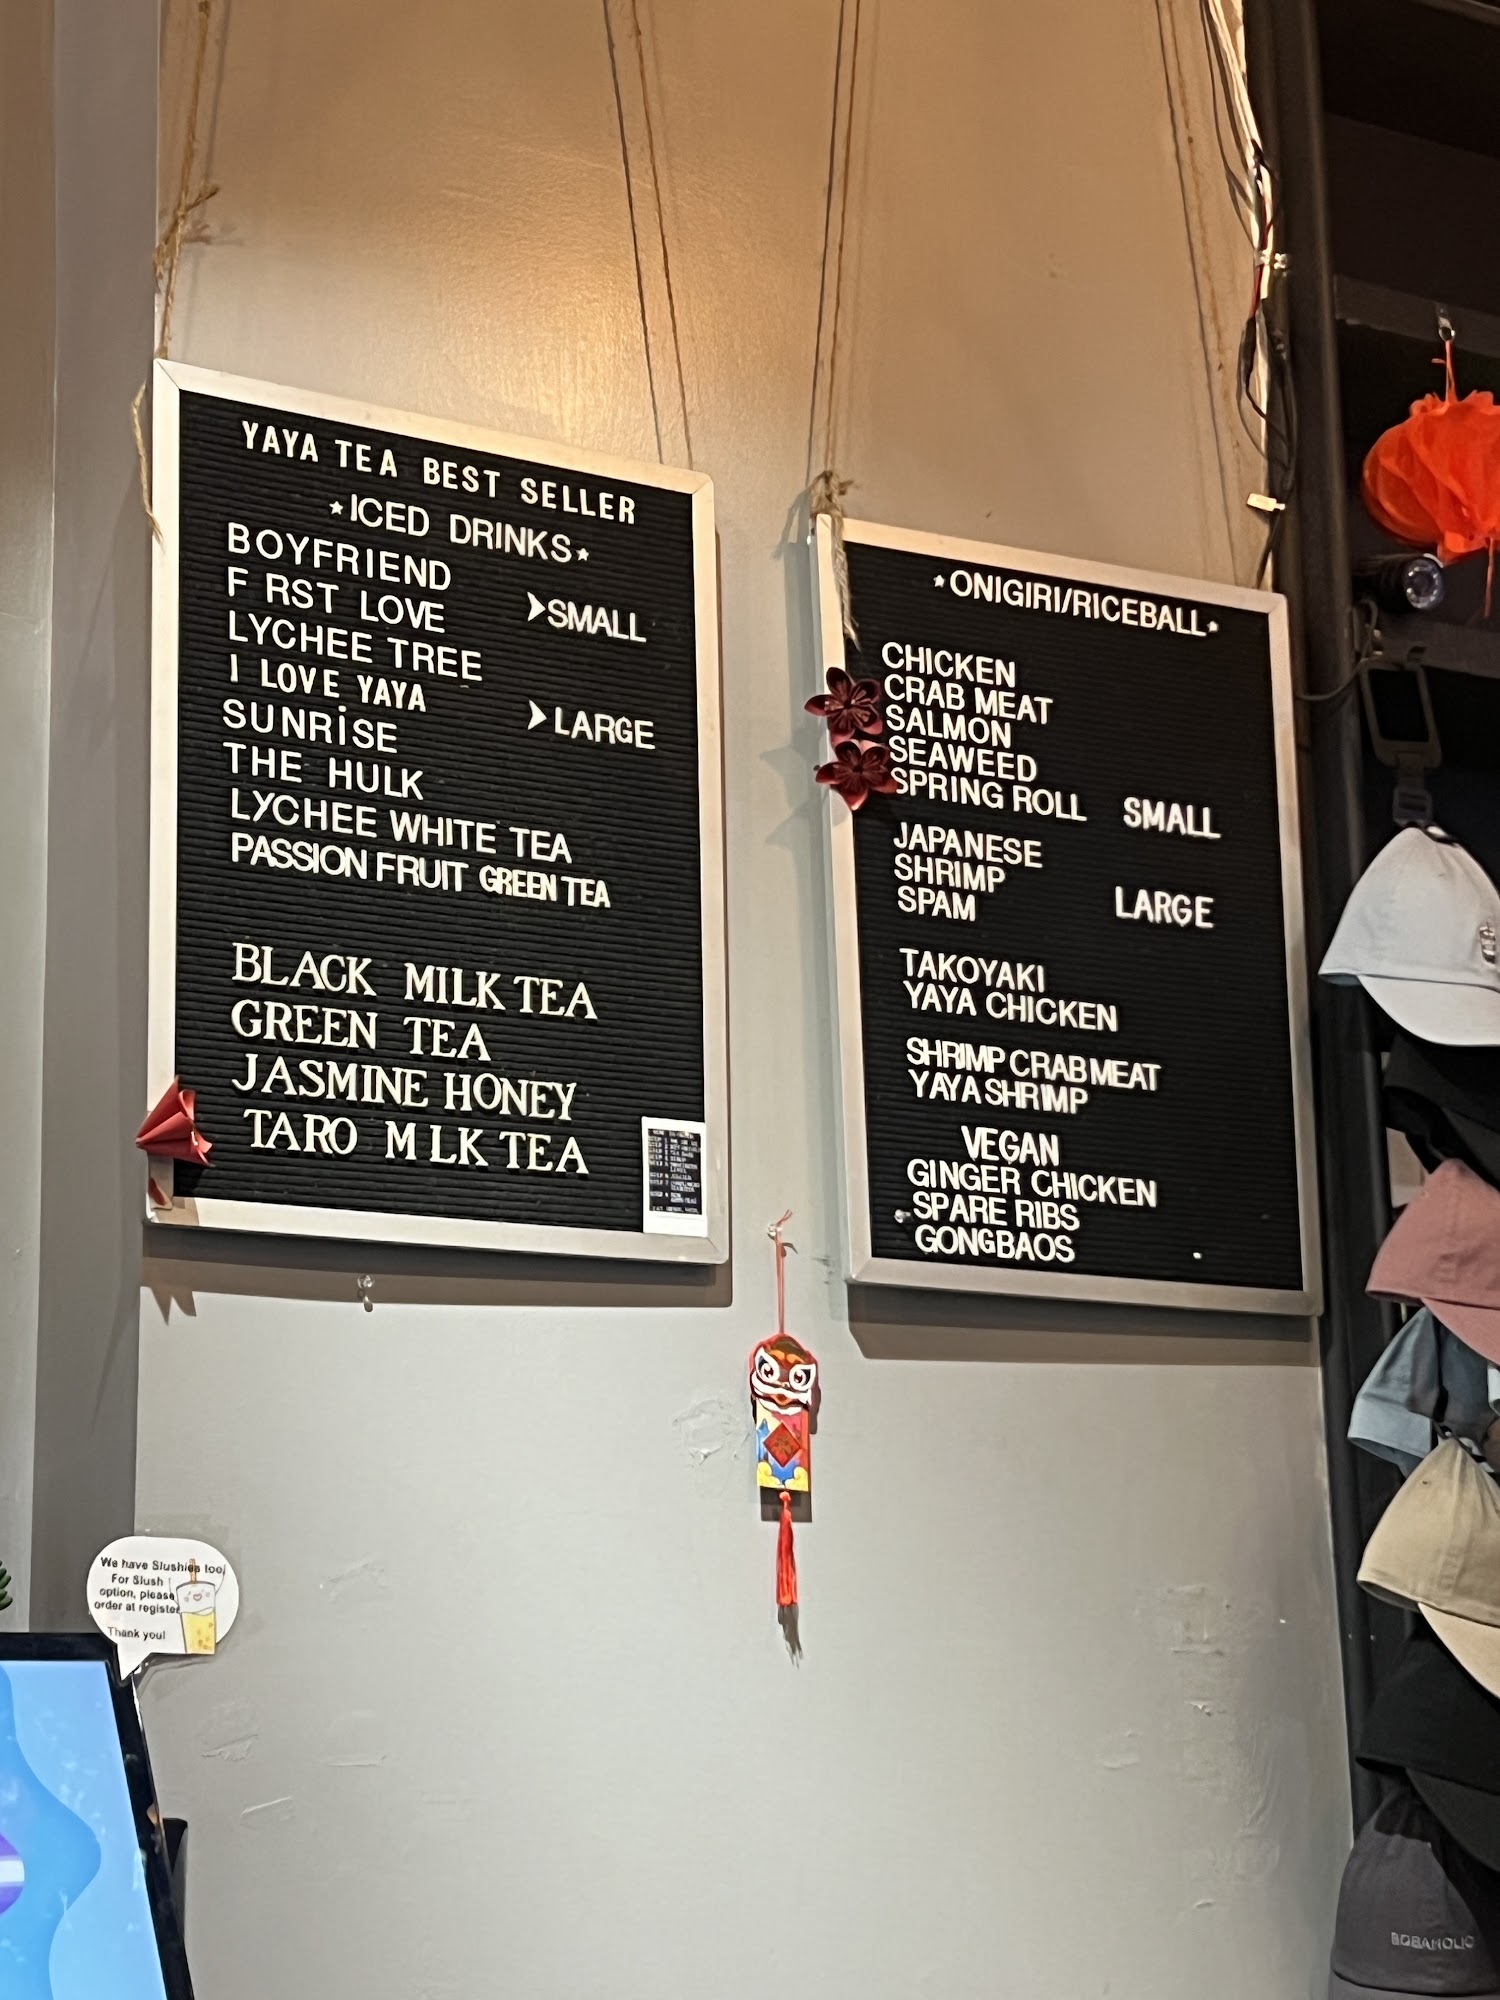 YAYA TEA BEST SELLER
★ICED DRINKS★
BOYFRIEND
F RST LOVE
LYCHEE TREE
I LOVE YAYA
SUNRiSE
THE HULK
LYCHEE WHITE TEA
PASSION FRUIT GREEN TEA
SMALL
LARGE
BLACK MILK TEA
GREEN TEA
JASMINE HONEY
TARO M LK TEA
★ONIGIRI/RICEBALL★
CHICKEN
CRAB MEAT
SALMON
SEAWEED
SPRING ROLL
JAPANESE
SHRIMP
SPAM
SMALL
LARGE
TAKOYAKI
YAYA CHICKEN
SHRIMP CRAB MEAT
YAYA SHRIMP
VEGAN
GINGER CHICKEN
SPARE RIBS
GONGBAOS
We have Slushies too!
For Slush
option, please
order at register
Thank you!
BOBAHOLIC